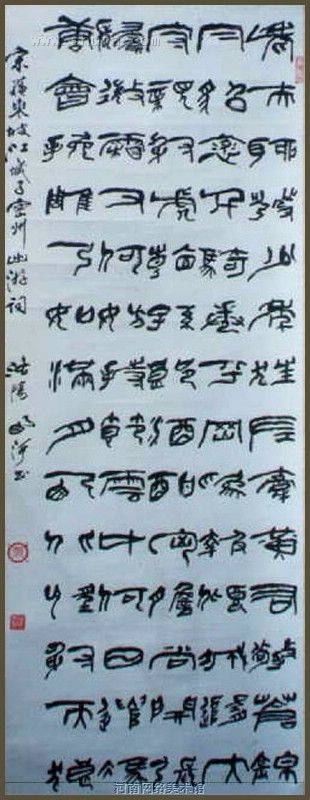 老夫聊發少年狂左牽黃右擎蒼錦
帽貂裘千騎卷平岡為報傾城隨太
守親射虎看孫郎酒酣胸膽尚開張
鬢微霜又何妨持節雲中何日遣馮
唐會挽雕弓如滿月西北望射天狼
宋蘇東坡江城子密州出獵詞 洛陽
河南网络美术馆